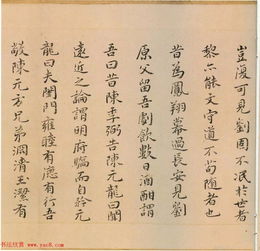 豈復可見劉固不泯於世者
黎亦能文守道不苟隨者也
昔為鳳翔幕過長安見劉
原父留吾劇飲數日酒酣謂
吾曰昔陳季弼告陳元龍曰聞
遠近之論謂明府驕而自矜元
龍曰夫閨門雍睦有德有行吾
敬陳元方兄弟淵清玉潔有
书法欣赏